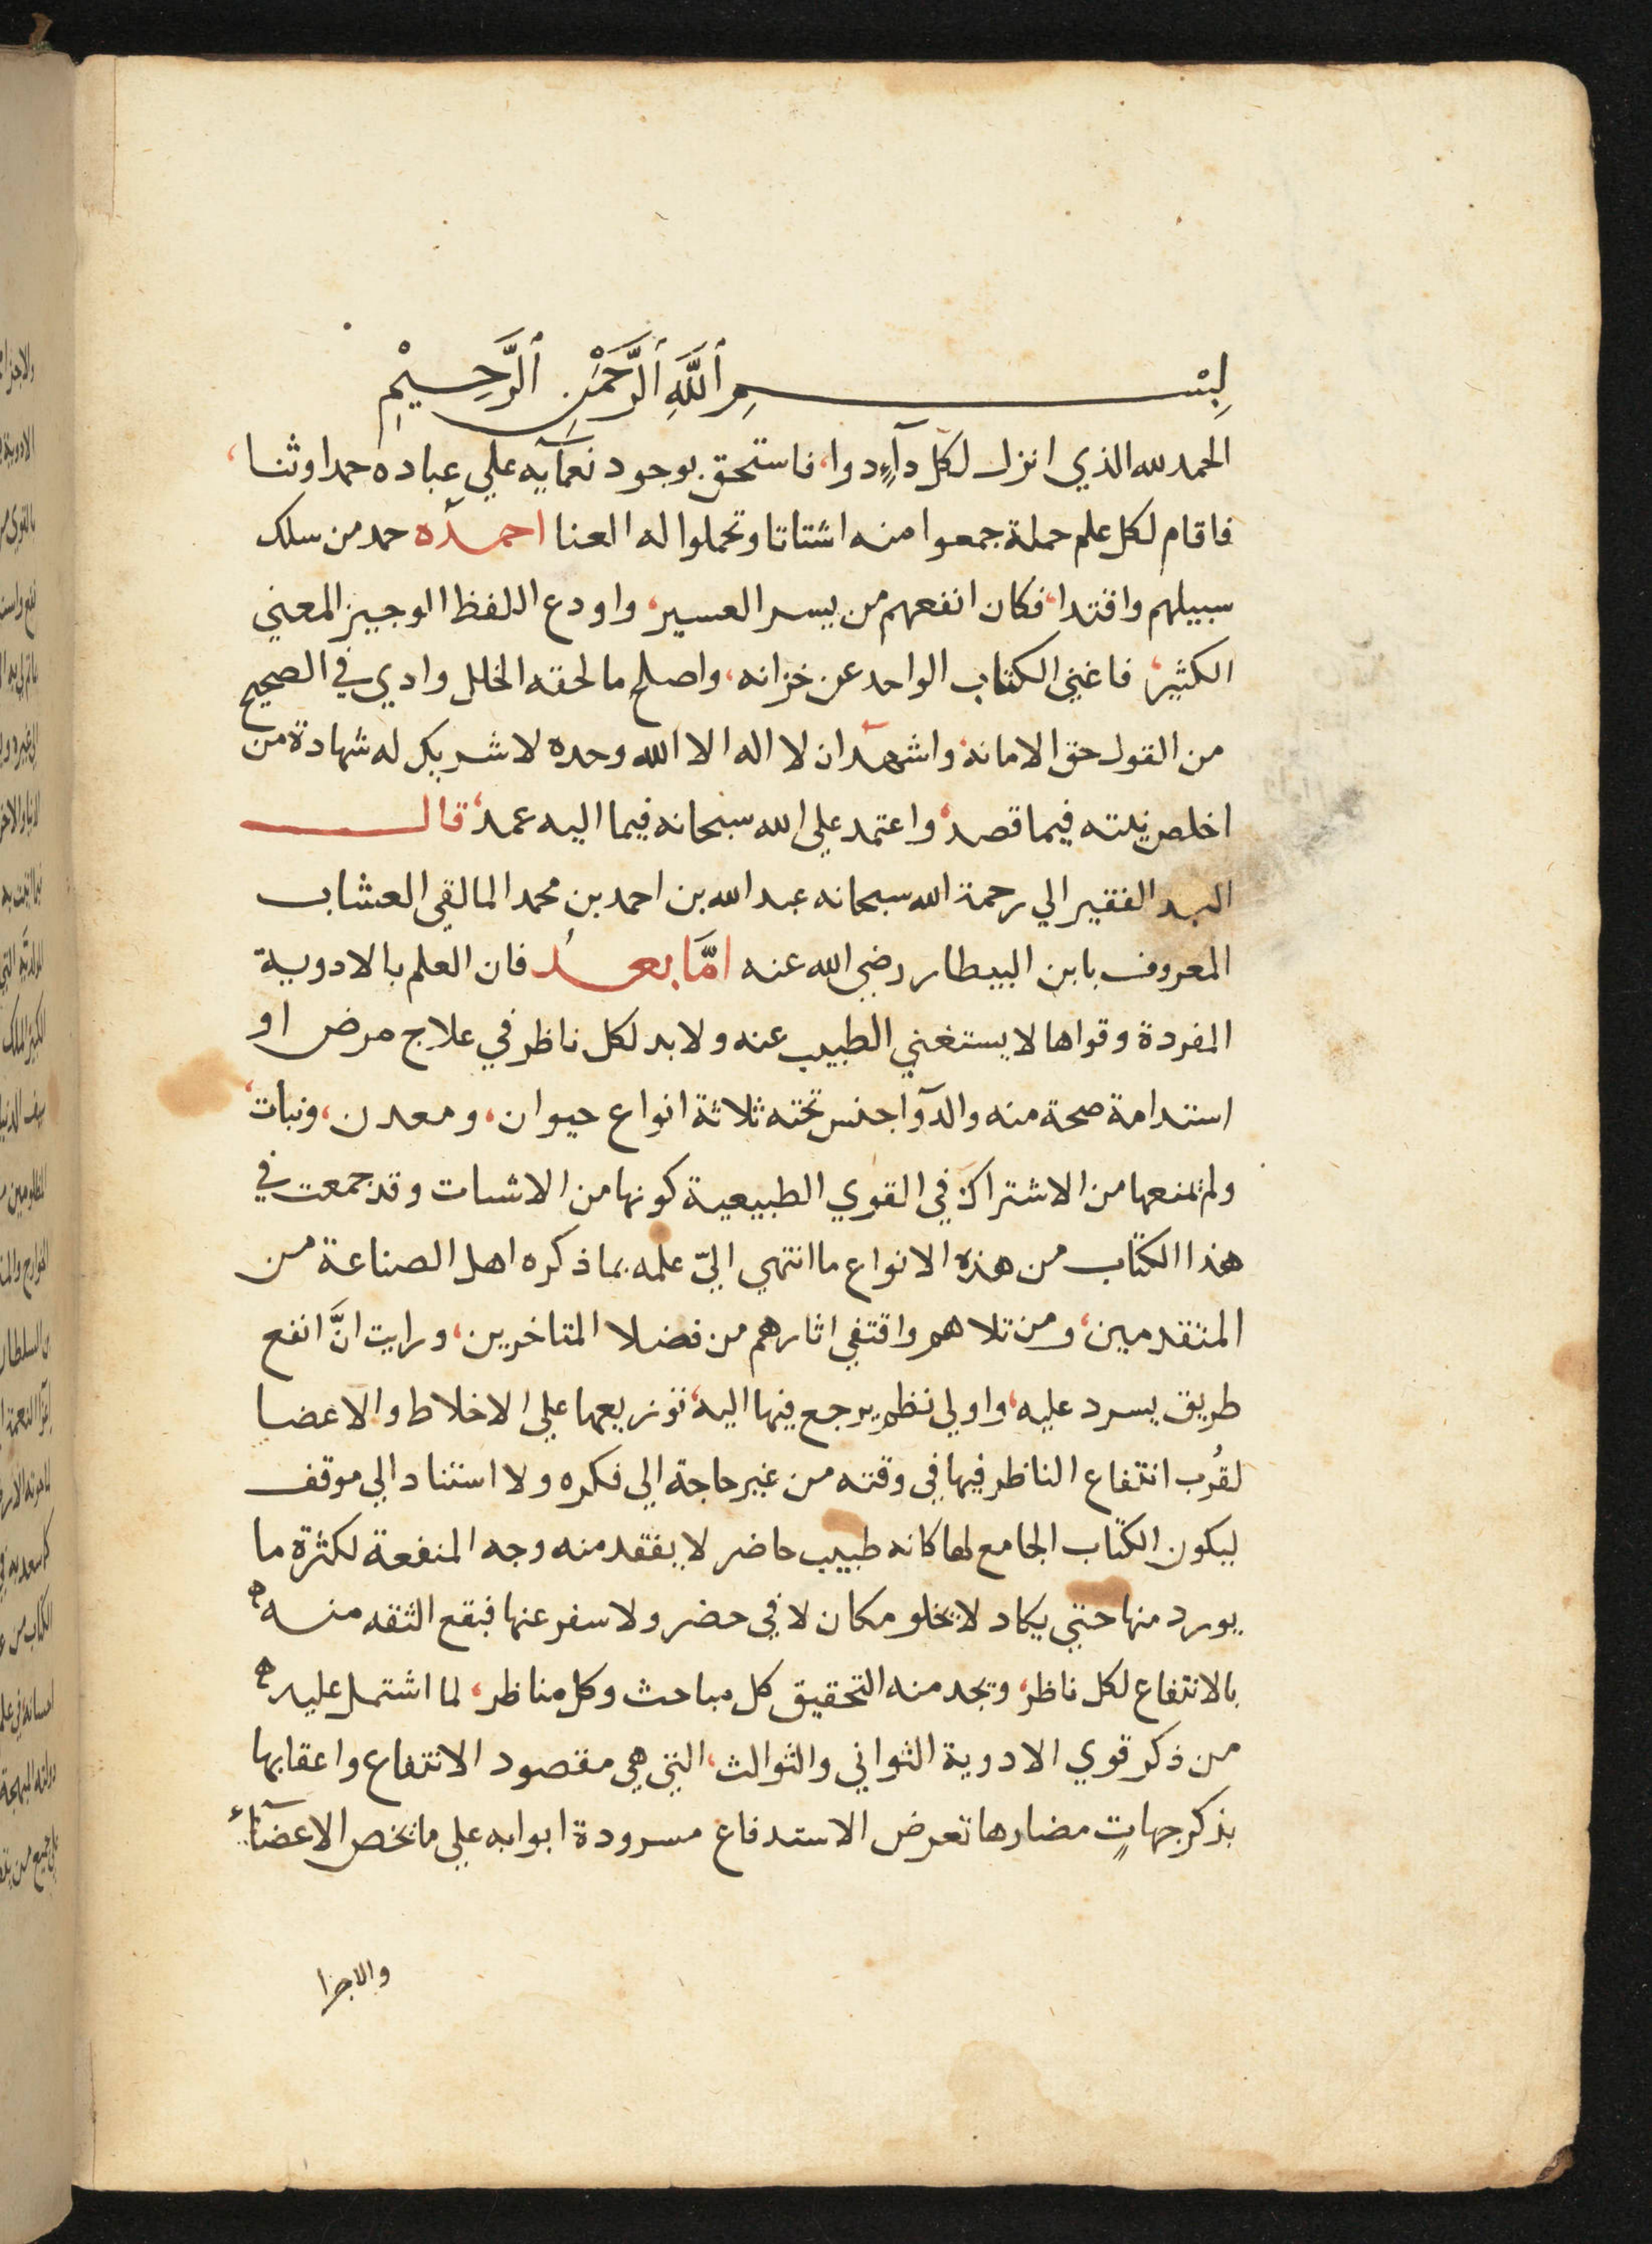 بِسْمِ ٱللَّهِ ٱلرَّحْمَٰنِ ٱلرَّحِيْمِ
الحمد لله الذي انزل لكل دآءٍ دوا، فاستحق بوجود نعمآيه علي عباده حمدا وثنا،
فاقام لكل علم حملة جمعوا منه اشتاتا وتحملوا له العنا احمده حمد من سلك
سبيلهم واقتدا، فكان انفعهم من يسر العسير، واودع اللفظ الوجيز المعني
الكثير، فاغني الكتاب الواحد عن خزانه، واصلح ما لحقه الخلل وادي في الصحيح
من القول حق الامانة، واشهد ان لا اله الا الله وحده لا شريك له شهادة من
اخلص نيته فيما قصد، واعتمد علي الله سبحانه فيما اليه عمد، قال
العبد الفقير الي رحمة الله سبحانه عبد الله بن احمد بن محمد المالقي العشاب
المعروف بابن البيطار رضي الله عنه امَّا بعدُ فان العلم بالادوية
المفردة وقواها لا يستغني الطبيب عنه ولا بد لكل ناظر في علاج مرض او
استدامة صحة منه والدآوا جنس تحته ثلاثة انواع حيوان، ومعدن، ونبات،
ولم يمنعها من الاشتراك في القوي الطبيعية كونها من الاشتات وقد جمعت في
هذا الكتاب من هذه الانواع ما انتهي اليّ علمه بما ذكره اهل الصناعة من
المتقدمين، ومن تلاهم واقتفي اثارهم من فضلا المتاخرين، ورايت انَّ انفع
طريق يسرد عليه، واولي نظم يرجع فيها اليه، توزيعها علي الاخلاط والاعضا
لقُرب انتفاع الناظر فيها في وقته من غير حاجة الي فكره ولا استناد الي موقف
ليكون الكتاب الجامع لها كانه طبيب حاضر لا يفقد منه وجه المنفعة لكثرة ما
يورد منها حتي يكاد لا يخلو مكان لا في حضر ولا سفر عنها فيقع الثقه منه
بالانتفاع لكل ناظر، ويجد منه التحقيق كل مباحث وكل مناظر، لما اشتمل عليه
من ذكر قوي الادوية الثواني والثوالث، التي هي مقصود الانتفاع واعقابها
بذكر جهاتٍ مضارها تعرض الاستدفاع مسرودة ابوابه علي ما يخص الاعضآء
والاجزا